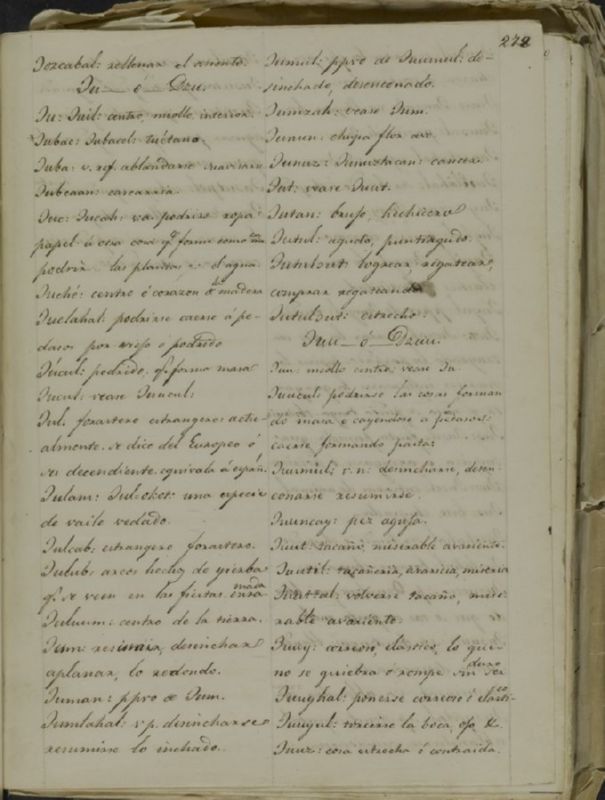 272
Jozcabal: rellenar el asiento.
Ju ó Dzu.
Ju: Juil: centro, miollo interior.
Jubac: Jubacel: tuétano.
Juba: v. ref. ablandarse suavisarse
Jubcaan: carcarria.
Juc: Jucah: va. podrirse ropa
papel ú otra cosa qe forme como
podrir las plantas el agua.
Juché: centro ó corazon de madera
Juclahal: podrirse caerse á pe-
dasos por viejo ó podrido
Júcul: podrido. qe forma masa
Jucul: vease Juucul:
Jul. forastero estrangero: actu-
almente. se dice del Europeo ó
su decendiente. equivale á españl.
Julam: Jul-okot: una especie
de vaile vedado.
Julcab: estrangero forastero.
Julub: arcos hechos de yierba
qe se veen en las fiestas
Juluum: centro de la tierra.
Jum: resumir, desinchar
aplanar, lo redondo.
Juman: ppvo de Jum.
Jumlahal: v p. desincharse
resumirse lo inchado.
Jumul: ppvo de Juumul: de-
sinchado, desenconado.
Jumzah: vease Jum.
Junun: chupa flor ave.
Junuz: Junuztacan: cancer.
Jut: vease Juut.
Jutan: brujo, hichicero
Jutul: agudo, puntiagudo.
logrear, rigatear,
comprar regateando
estrecho:
Juu ó Dzuu.
Juu: miollo centro, vease Ju.
Juucul: podrirse las cosas forman
do masa ó cayendose á pedasos:
caerse formando pasta:
Juumul: v. n. desincharse, desen-
conarse resumirse.
Juuncay: pez aguja.
Juut: tacaño, miserable avariento.
Juutil: tacañeria, avaricia, miseria
Juutzal: volverse tacaño, mise-
rable avariento.
Juuy: correon, elastico, lo que
no se quiebra ó rompe sin ser duro
Juuyhal: ponerse correoso ó elastico
Juuyul: torcerse la boca, ojo &.
Juuz: cosa estrecha ó contraida.